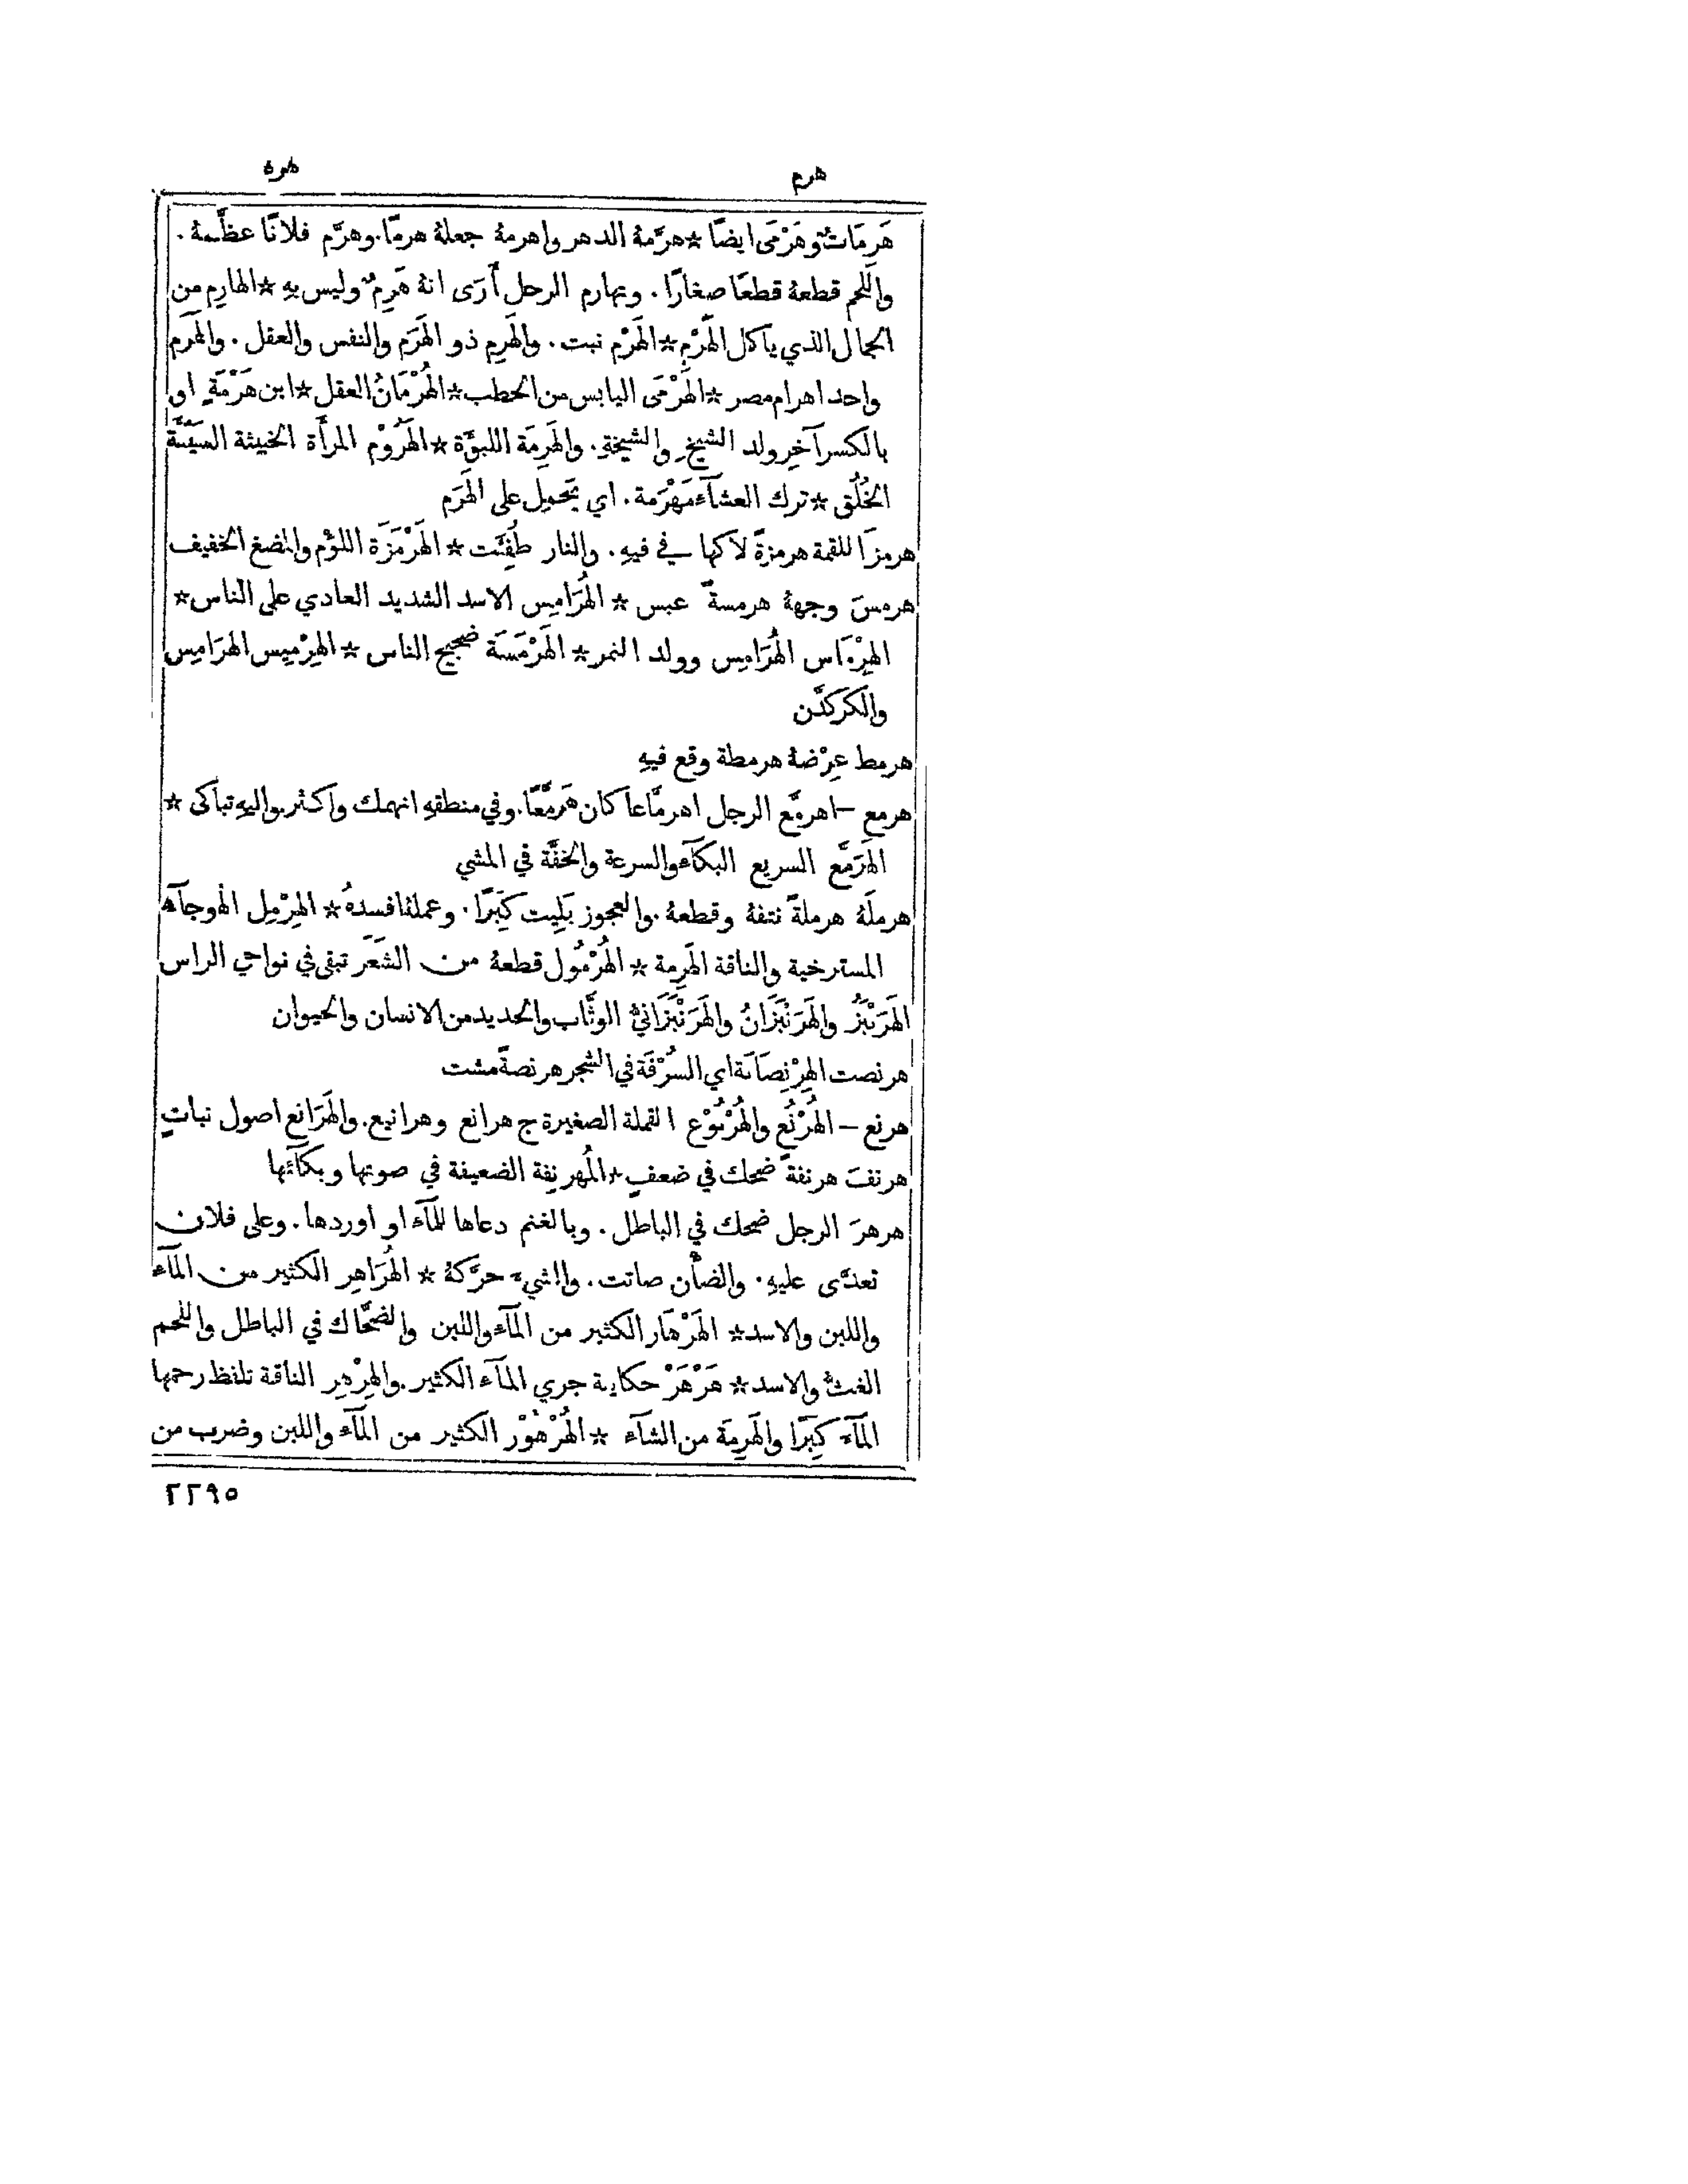 هرم
هره
هَرِمَاتٌ وهَرْمَى ايضًا * هرَّمهُ الدهر واهرمهُ جعلهُ هرمًا. وهرَّم فلانًا عظَّمهُ.
واللحم قطعهُ قطعًا صغارًا. وتهارم الرجل أَرَى انهُ هَرِمٌ وليس بهِ * الهارِم من
الجمال الذي ياكل الهَرْم * الهَرْم نبت. والهَرِم ذو الهَرَم والنفس والعقل. والهَرَم
واحد اهرام مصر * الهَرْمَى اليابس من الحطب * الهُرْمَانُ العقل * ابن هَرْمَةٍ او
بالكسر آخِر ولد الشيخ والشيخةِ. والهَرِمَة اللبوَّة * الهَرُوْم المرأَة الخبيثة السيّئَة
الخُلُق * ترك العشآءَ مَهْرَمة. اي يحمِل على الهَرَم
هرمزَ اللقمة هرمزةً لاكها في فيهِ. والنار طُفِئَت * الهَرْمَزَة اللؤم والمضغ الخفيف
هرمسَ وجههُ هرمسةً عبس * الهُرَامِس الاسد الشديد العادي على الناس *
الهِرْمَاس الهُرَامِس وولد النمر * الهَرْمَسَة ضجيج الناس * الهِرْمِيس الهرَامِس
والكَرْكَدَّن
هرمط عِرْضهُ هرمطة وقع فيهِ
هرمع – اهرمَّع الرجل اهرمَّاعا كان هَرَمَّعًا. وفي منطقهِ انهمك واكثر. واليهِ تباكى *
الهَرَمَّع السريع البكآء والسرعة والخفَّة في المشي
هرملَهُ هرملةً نتفهُ وقطعهُ. والعجوز بَلِيت كِبَرًا. وعملهُ افسدهُ * الهِرْمِل الهوجآء
المسترخية والناقة الهَرِمة * الهُرْمُول قطعة من الشَعَر تبقى في نواحي الراس
الهَرَنْبَزُ والهَرَنْبَزَانُ والهَرَنْبَزَانيُّ الوثَّاب والحديد من الانسان والحيوان
هرنصت الهِرْنِصَانَة اي السُرْفَة في الشجر هرنصةً مشت
هرنع – الهُرْنُع والهُرْنُوْع القملة الصغيرة ج هرانع وهرانيع. والهَرَانع اصول نباتٍ
هرنفَ هرنفةً ضحك في ضعفٍ * المُهرنِفة الضعيفة في صوتها وبكآئها
هرهرَ الرجل ضحك في الباطل. وبالغنم دعاها للمآء او اوردها. وعلى فلان
تعدَّى عليهِ. والضأن صاتت. والشيء حرَّكهُ * الهُرَاهِر الكثير من المآء
واللبن والاسد * الهَرْهَار الكثير من المآء واللبن والضحَّاك في الباطل واللحم
الغثُّ والاسد * هَرْهَرْ حكاية جري المآء الكثير. والهِرْهِر الناقة تلفظ رحمها
المآء كِبَرًا والهَرِمَة من الشآء * الهُرْهُوْر الكثير من المآء واللبن وضرب من
٢٢٩٥